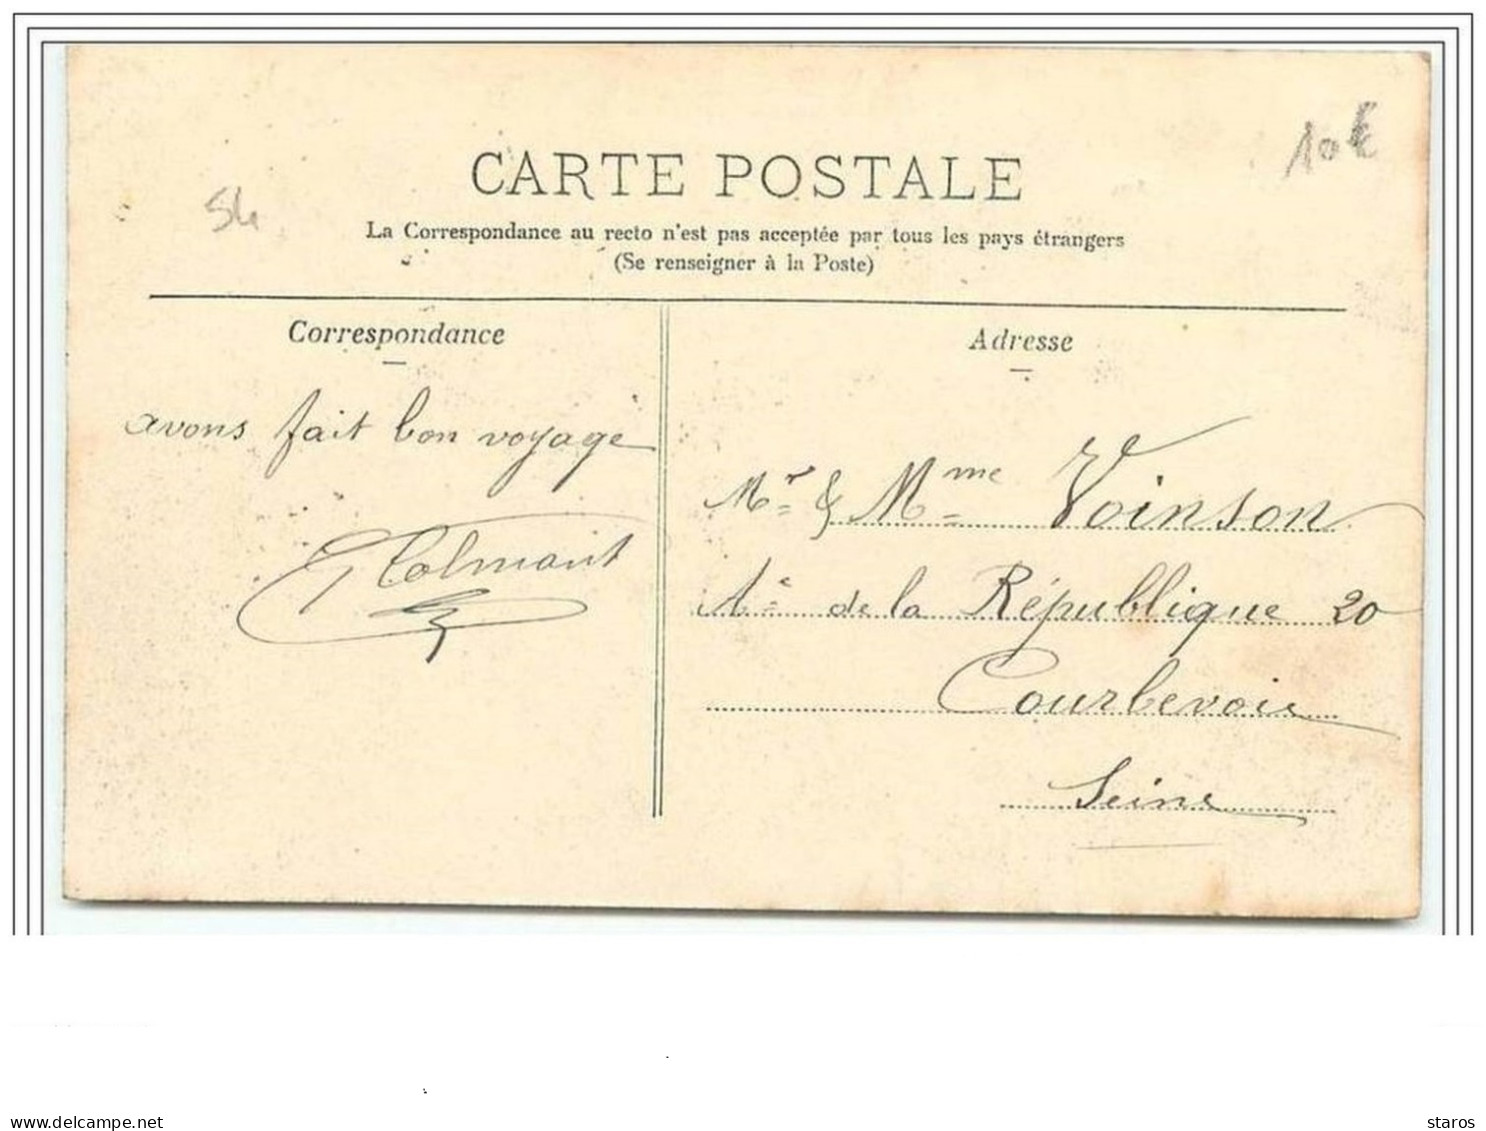 10€
54
CARTE POSTALE
La Correspondance au recto n'est pas acceptée par tous les pays étrangers
(Se renseigner à la Poste)
Correspondance
avons fait bon voyage
Colmant
Adresse
Mr & Mme Voinson
Ae de la République 20
Courbevoie
Seine
delcampe.net
staros